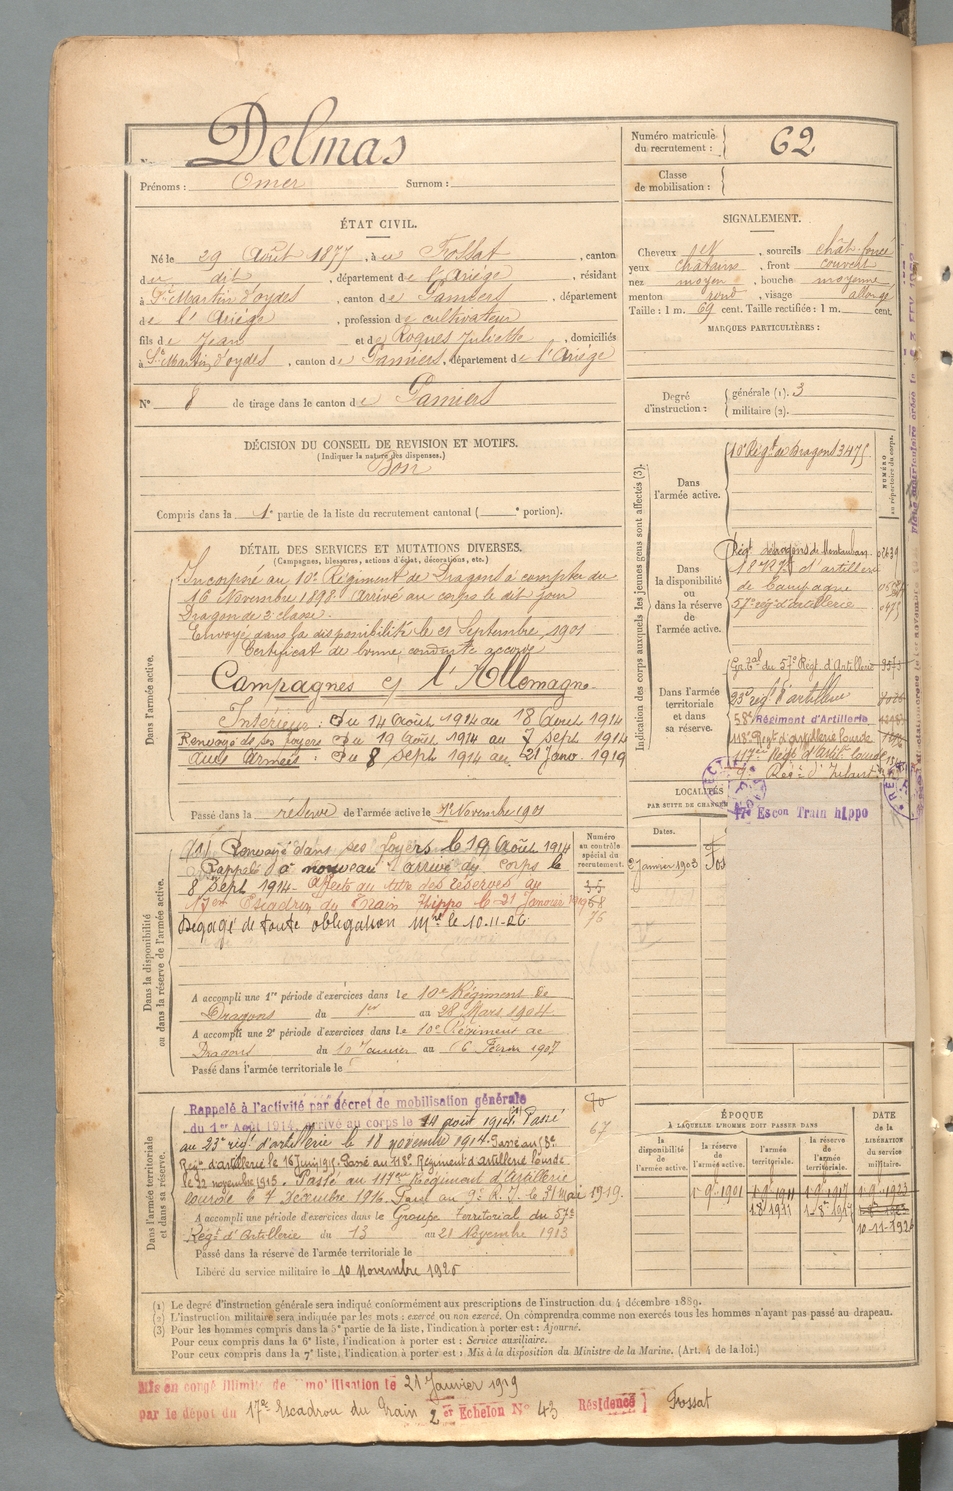 Delmas
Prénoms : Omer Surnom :
Numéro matricule du recrutement : 62
Classe de mobilisation :
ÉTAT CIVIL.
Né le 29 Août 1877, à u Fossat, canton
du dit, département de l'Ariège, résidant
à St Martin d'oydes, canton de Pamiers, département
de l'Ariège, profession de cultivateur
fils de Jean et de Roques Juliette, domiciliés
à St Martin d'oydes, canton de Pamiers, département de l'Ariège
N° 8 de tirage dans le canton de Pamiers
SIGNALEMENT.
Cheveux , sourcils chât. foncé
yeux châtains, front couvert
nez moyen, bouche moyenne
menton rond, visage allongé
Taille : 1 m. 69 cent. Taille rectifiée : 1 m. cent.
MARQUES PARTICULIÈRES :
Degré d'instruction : générale (1). 3
militaire (2).
DÉCISION DU CONSEIL DE REVISION ET MOTIFS.
(Indiquer la nature des dispenses.)
Bon
Compris dans la 1e partie de la liste du recrutement cantonal ( e portion).
DÉTAIL DES SERVICES ET MUTATIONS DIVERSES.
(Campagnes, blessures, actions d'éclat, décorations, etc.)
Dans l'armée active.
Incorporé au 10e Régiment de Dragons à compter du
16 Novembre 1898. Arrivé au corps le dit jour
Dragon de 2e classe.
Envoyé dans la disponibilité le 21 Septembre 1901
Certificat de bonne conduite accordé
Campagnes c/ l'Allemagne
Intérieur : Du 14 Août 1914 au 18 Août 1914
Renvoyé de ses foyers Du 19 août 1914 au 7 sept 1914
aux armées : Du 8 sept 1914 au 21 Janv. 1919
Passé dans la réserve de l'armée active le 1er Novembre 1901
Indication des corps auxquels les jeunes gens sont affectés (3).
NUMÉRO au répertoire du corps.
Dans l'armée active.
10e Régt de Dragons 3475
Dans la disponibilité ou dans la réserve de l'armée active.
Régt de dragons de Montauban
18e Rgt d'artillerie
de Campagne
57e rég d'artillerie 0475
Dans l'armée territoriale et dans sa réserve.
Gr. Tal du 57e Régt d'Artillerie
23e rég d'artillerie
58e Régiment d'Artillerie
118e Régt d'artillerie lourde
117e Régt d'Artie Lourde
9e Rég. d'Infant.
17e Escon Train hippo
LOCALITÉS
PAR SUITE DE CHANGEM
Dates.
2 Janvier 1903 Fos
Dans la disponibilité ou dans la réserve de l'armée active.
Numéro au contrôle spécial du recrutement.
Renvoyé dans ses foyers le 19 Août 1914
Rappelé à nouveau arrivé au corps le
8 sept 1914. Affecté au titre des réserves au
17em Escadron du Train Hippo le 21 Janvier 1919
Dégagé de toute obligation Mre le 10.11.26
68
75
A accompli une 1re période d'exercices dans le 10e Régiment de
Dragons du 1er au 28 Mars 1904
A accompli une 2e période d'exercices dans le 10e Régiment de
Dragons du 10 Janvier au 6 Février 1907
Passé dans l'armée territoriale le
Dans l'armée territoriale et dans sa réserve.
Rappelé à l'activité par décret de mobilisation générale
du 1er Août 1914. Arrivé au corps le 14 août 1914. Passé
au 23e rég. d'artillerie le 18 novembre 1914. Passé au 58e
Régt d'artillerie le 16 Juin 1915. Passé au 118e Régiment d'artillerie lourde
le 22 novembre 1915. Passé au 117em Régiment d'Artillerie
lourde le 7 Décembre 1916. Passé au 9e R.I. le 31 mai 1919.
A accompli une période d'exercices dans le Groupe Territorial du 57e
Régt d'Artillerie du 13 au 21 Novembre 1913
Passé dans la réserve de l'armée territoriale le
Libéré du service militaire le 10 novembre 1926
70
67
ÉPOQUE
À LAQUELLE L'HOMME DOIT PASSER DANS
DATE de la LIBÉRATION du service militaire.
la disponibilité de l'armée active.
la réserve de l'armée active.
l'armée territoriale.
la réserve de l'armée territoriale.
1er 9bre 1901
10-11-1926
(1) Le degré d'instruction générale sera indiqué conformément aux prescriptions de l'instruction du 4 décembre 1889.
(2) L'instruction militaire sera indiquée par les mots : exercé ou non exercé. On comprendra comme non exercés tous les hommes n'ayant pas passé au drapeau.
(3) Pour les hommes compris dans la 5e partie de la liste, l'indication à porter est : Ajourné.
Pour ceux compris dans la 6e liste, l'indication à porter est : Service auxiliaire.
Pour ceux compris dans la 7e liste, l'indication à porter est : Mis à la disposition du Ministre de la Marine. (Art. 4 de la loi.)
Mis en congé illimité de démobilisation le 21 Janvier 1919
par le dépôt du 17e Escadron du Train 2er Echelon N° 43 Résidence Fossat